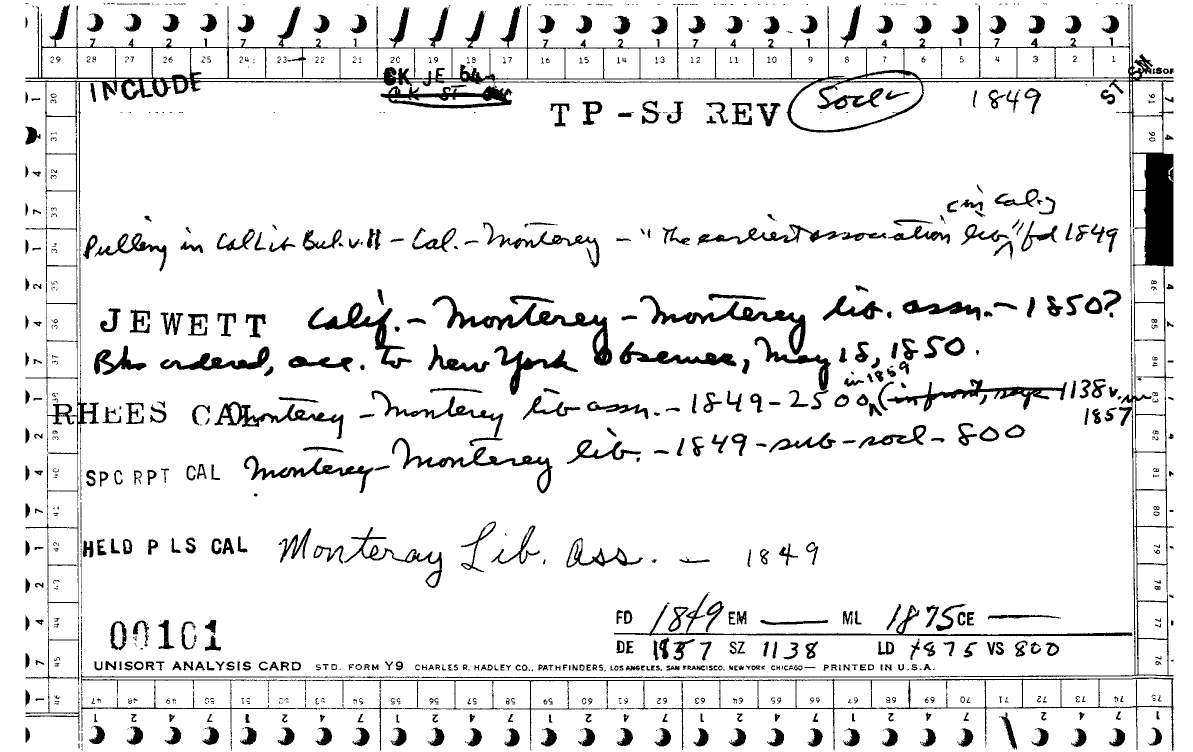 7 4 2 1 7 4 2 1 7 4 2 1 7 4 2 1 7 4 2 1 7 4 2 1 7 4 2 1
29 28 27 26 25 24 23 22 21 20 19 18 17 16 15 14 13 12 11 10 9 8 7 6 5 4 3 2 1
INCLUDE
CK JE 64
TP-SJ REV Socl 1849
(in Cal.)
Pulling in Cal Lib Bul. v. II - Cal. - Monterey - "The earliest association lib" fd 1849
JEWETT Calif. - Monterey - Monterey lib. assn. - 1850?
Bks ordered, acc. to New York Observer, May 18, 1850.
in 1859
RHEES CAL Monterey - Monterey lib assn. - 1849 - 2500 (in front, says 1138 v. in
1857
SPC RPT CAL Monterey - Monterey lib. - 1849 - sub - socl - 800
HELD P LS CAL Monteray Lib. Ass. — 1849
FD 1849 EM —— ML 1875 CE ——
00101
DE 1857 SZ 1138 LD 1875 VS 800
UNISORT ANALYSIS CARD STD. FORM Y9 CHARLES R. HADLEY CO., PATHFINDERS, LOS ANGELES, SAN FRANCISCO, NEW YORK CHICAGO— PRINTED IN U.S.A.
47 48 49 50 51 52 53 54 55 56 57 58 59 60 61 62 63 64 65 66 67 68 69 70 71 72 73 74 75